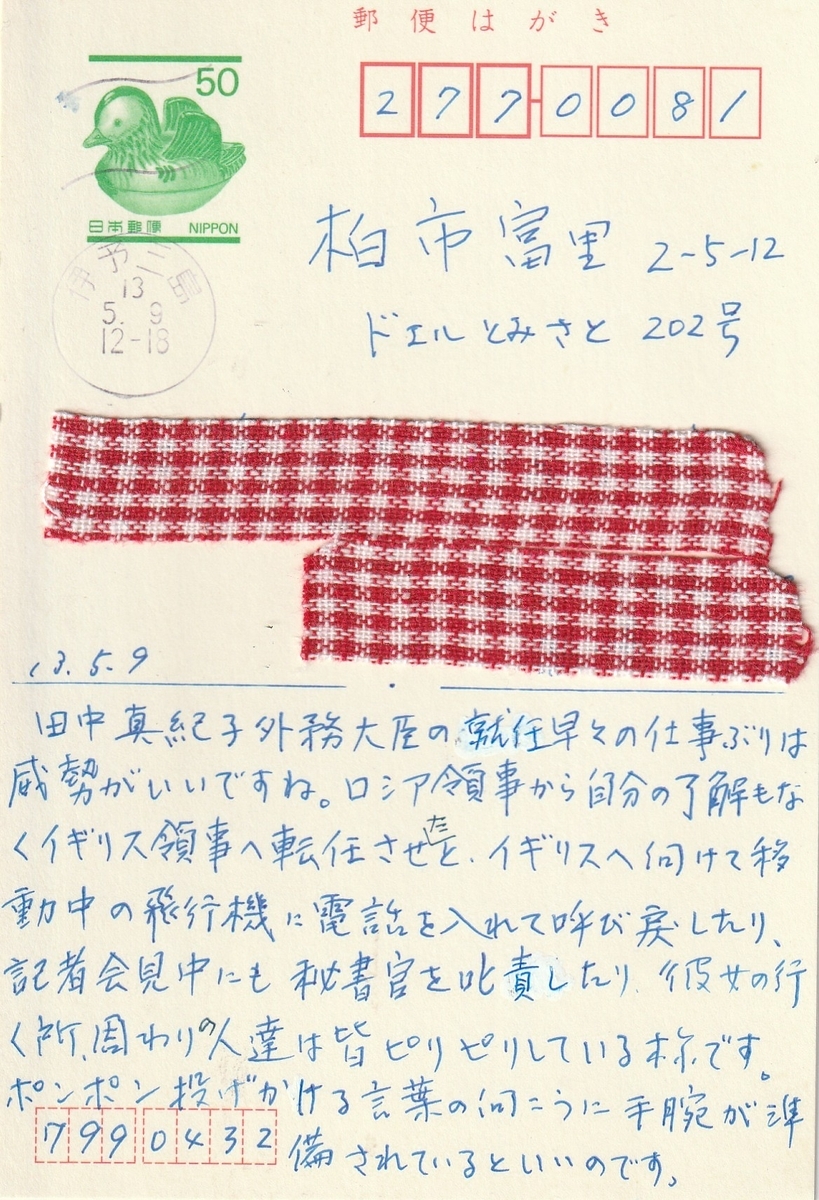 郵便はがき
50
日本郵便 NIPPON
277-0081
伊予三島
13
5. 9
12-18
柏市富里 2-5-12
ドエルとみさと 202号
13.5.9
田中真紀子外務大臣の就任早々の仕事ぶりは
威勢がいいですね。ロシア領事から自分の了解もな
くイギリス領事へ転任させたと、イギリスへ向けて移
動中の飛行機に電話を入れて呼び戻したり、
記者会見中にも秘書官を叱責したり、彼女の行
く所、周わりの人達は皆ピリピリしている様です。
ポンポン投げかける言葉の向こうに手腕が準
備されているといいのです。
7990432